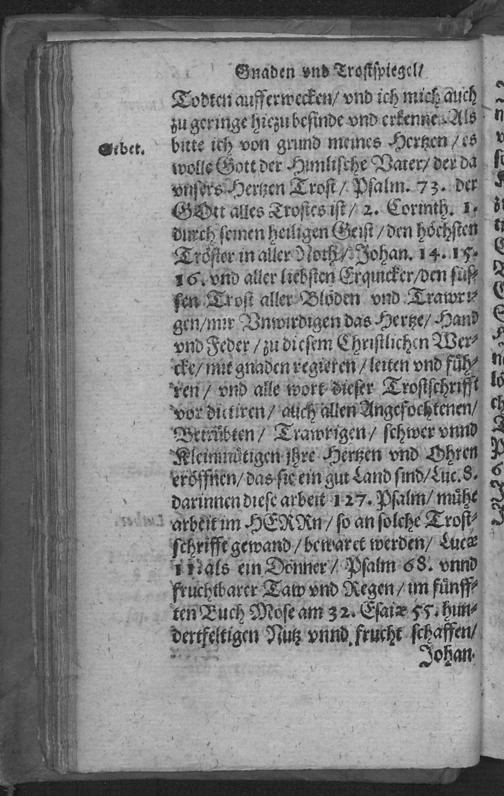 Gnaden vnd Trostspiegel/
Todten aufferwecken/ vnd ich mich auch
zu geringe hiezu befinde vnd erkenne. Als
Gebet.
bitte ich von grund meines Hertzen/ es
wolle Gott der Himlische Vater/ der da
vnsers Hertzen Trost/ Psalm. 73. der
GOtt alles Trostes ist/ 2. Corinth. 1.
durch seinen heiligen Geist/ den höchsten
Tröster in aller Noth/ Johan. 14. 15.
16. vnd aller liebsten Erquicker/ den süs-
sen Trost aller Blöden vnd Trawri-
gen/ mir Vnwirdigen das Hertze/ Hand
vnd Feder/ zu diesem Christlichen Wer-
cke/ mit gnaden regieren/ leiten vnd füh-
ren/ vnd alle wort dieser Trostschrifft
vor dictiren/ auch allen Angefochtenen/
Betrübten/ Trawrigen/ schwer vnnd
Kleinmütigen jhre Hertzen vnd Ohren
eröffnen/ das sie ein gut Land sind/ Luc. 8.
darinnen diese arbeit 127. Psalm/ mühe
arbeit im HERRn/ so an solche Trost-
schrifft gewand/ bewaret werden/ Lucæ
11. als ein Donner/ Psalm 68. vnnd
fruchtbarer Taw vnd Regen/ im fünff-
ten Buch Mose am 32. Esaiæ 55. hun-
dertfeltigen Nutz vnnd frucht schaffen/
Johan.